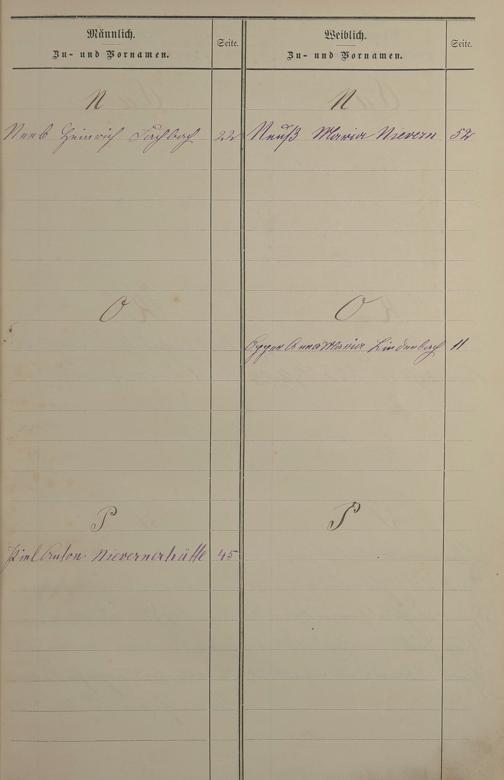 Männlich.
Zu- und Vornamen.
Seite.
Weiblich.
Zu- und Vornamen.
Seite.
N
N
Neeb Heinrich Fachbach 22
Neuß Maria Nievern 52
O
O
Anna Maria Lindenbach 11
P
P
Piel Anton Nievernerhütte 45